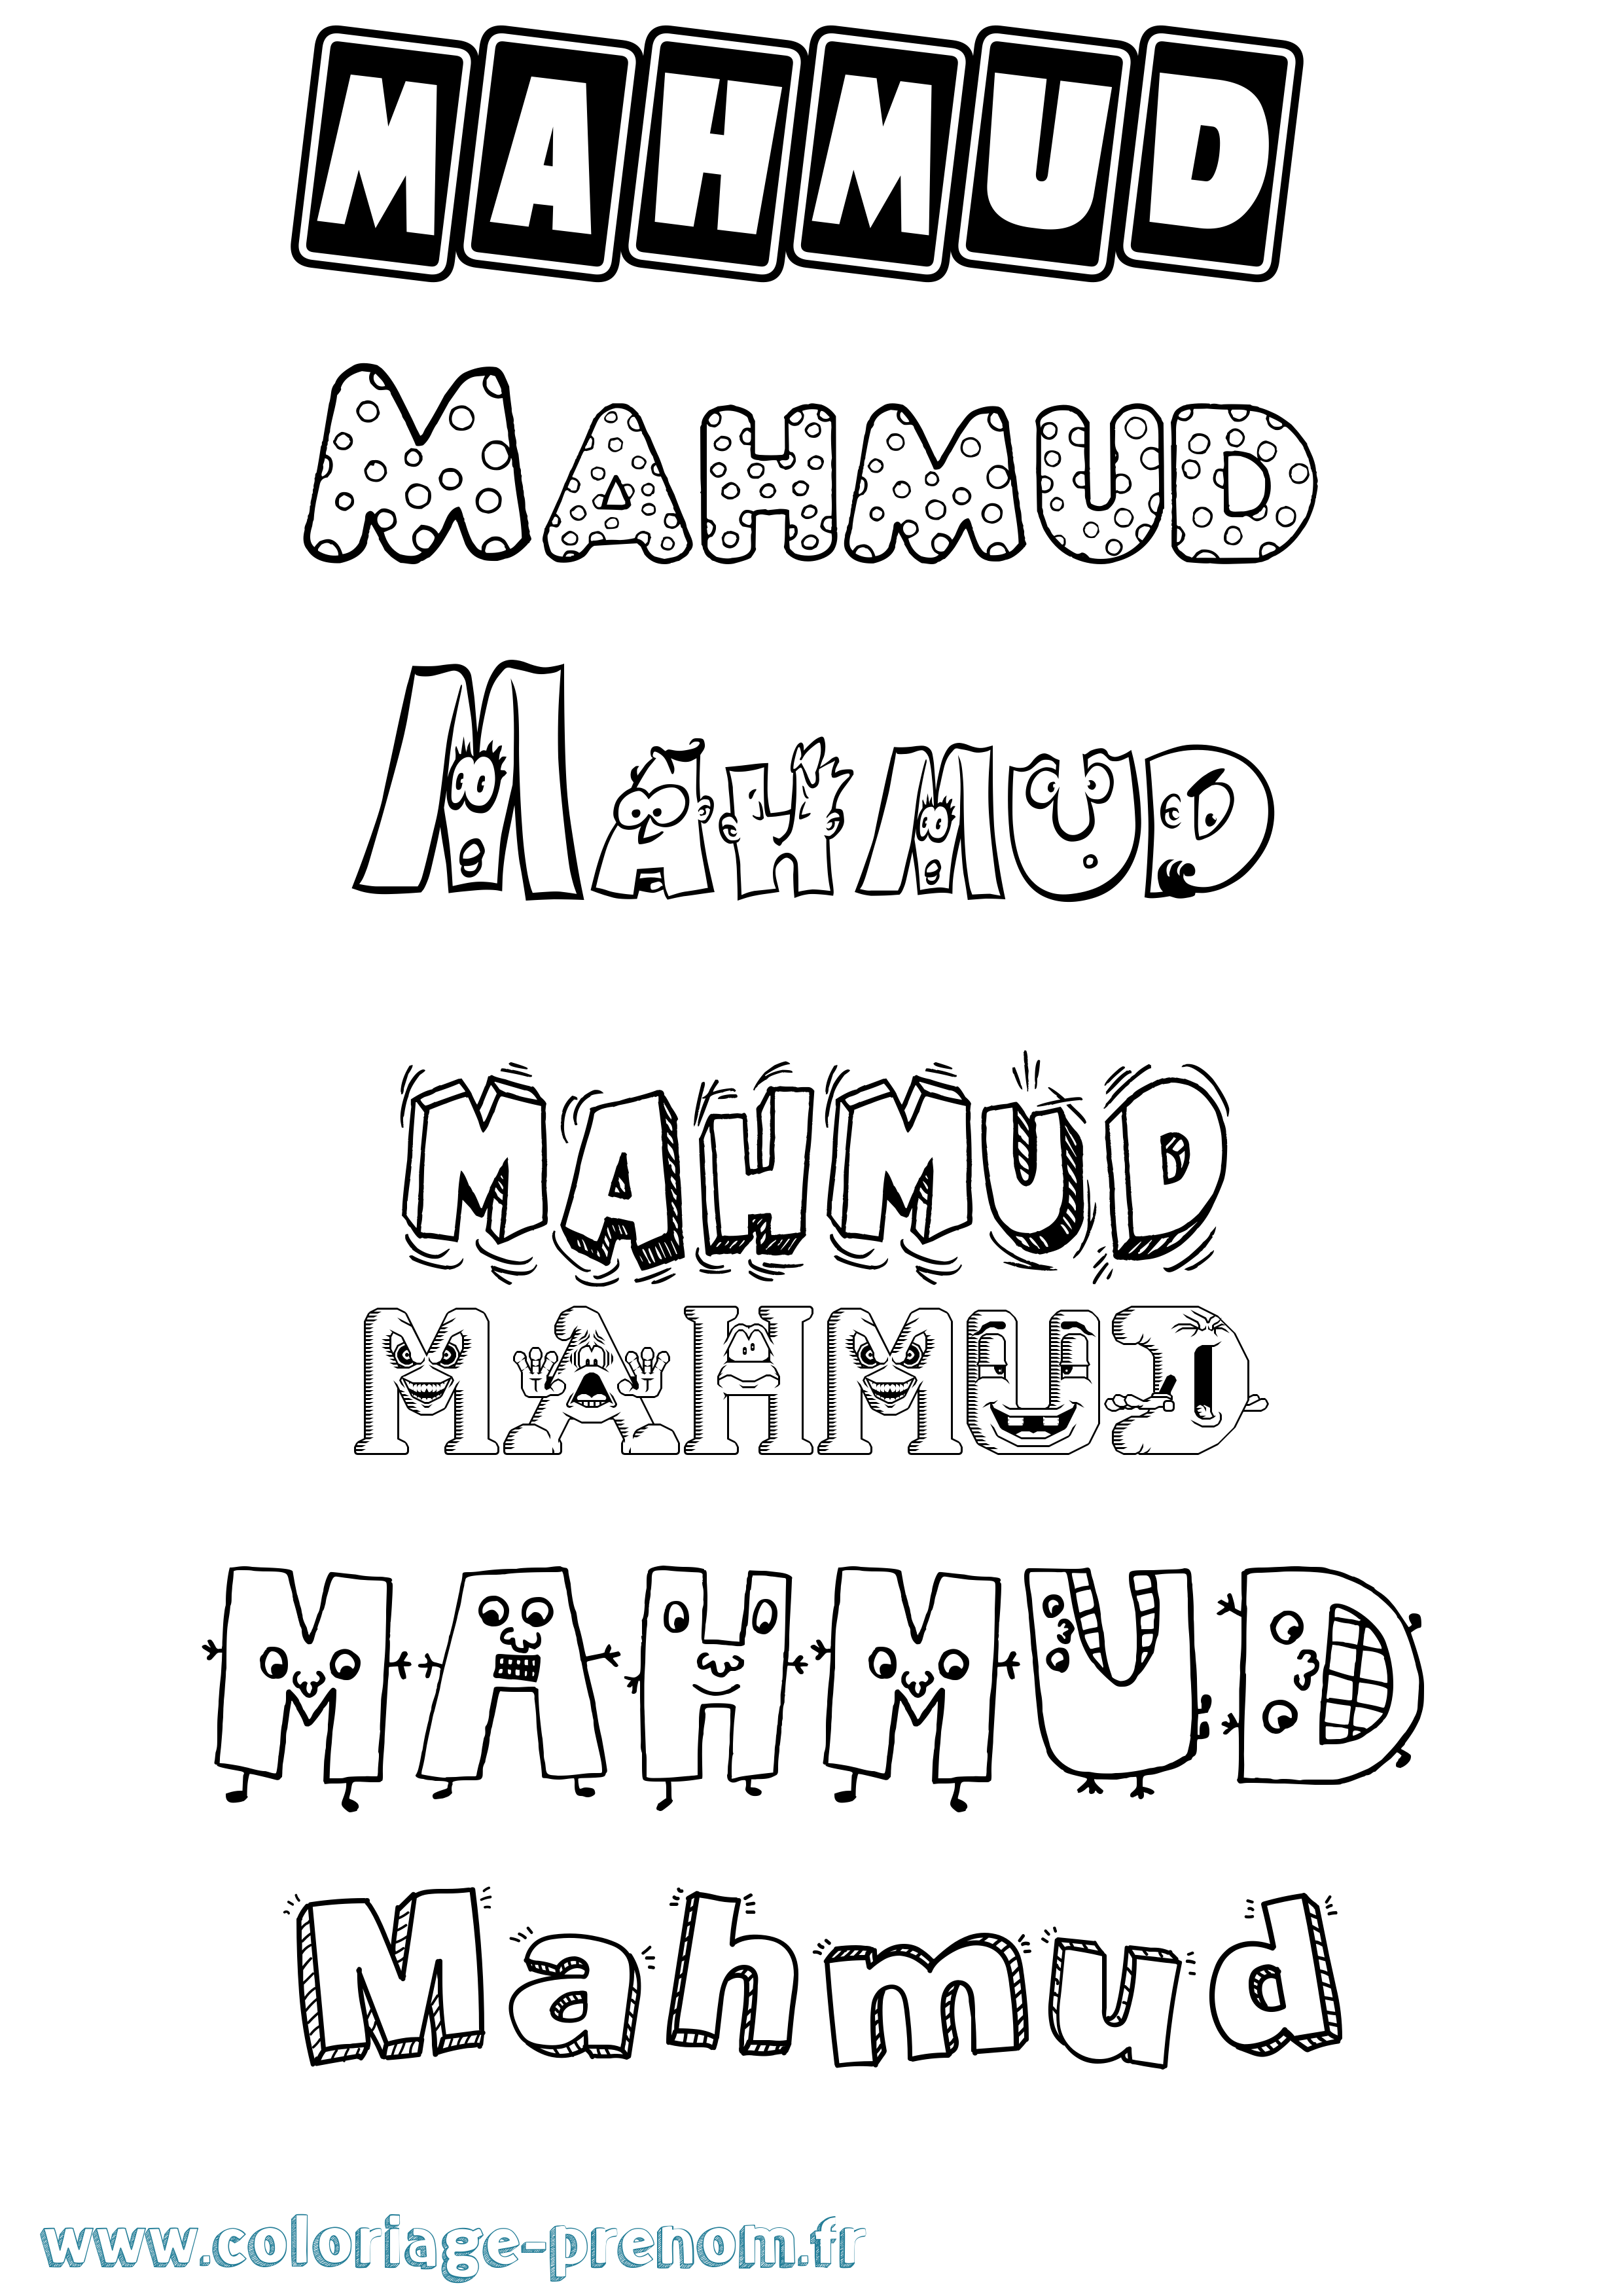 MAHMUD
MAHMUD
MAHMUD
MAHMUD
MAHMUD
MAHMUD
Mahmud
www.coloriage-prenom.fr